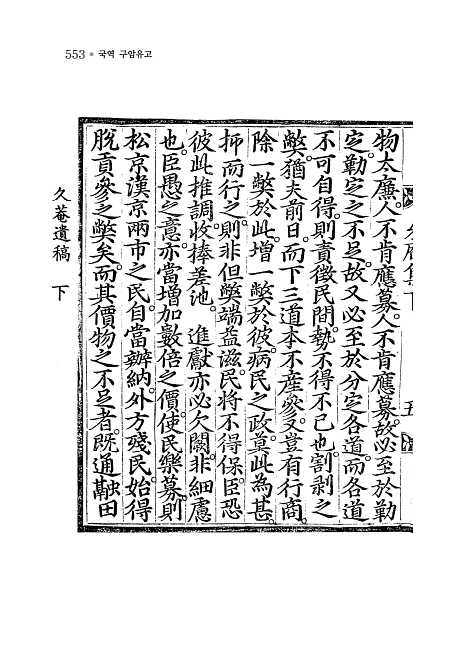 553 ● 국역 구암유고
物太廉。人不肯應募。人不肯應募。故必至於勒
定。勒定之不足。故又必至於分定各道。而各道
不可自得。則責徵民間。勢不得不已也。割剥之
弊。猶夫前日。而下三道本不産參。又豈有行商。
除一弊於此。增一弊於彼。病民之政。莫此為甚。
抑而行之。則非但弊端益滋。民將不得保。臣恐
彼此推調。收捧差池。進獻亦必欠闕。非細慮
也。臣愚之意。亦當增加數倍之價。使民樂募。則
松京漢京兩市之民。自當辦納。外方殘民。始得
脫貢參之弊矣。而其價物之不足者。旣通融田
久菴遺稿 下